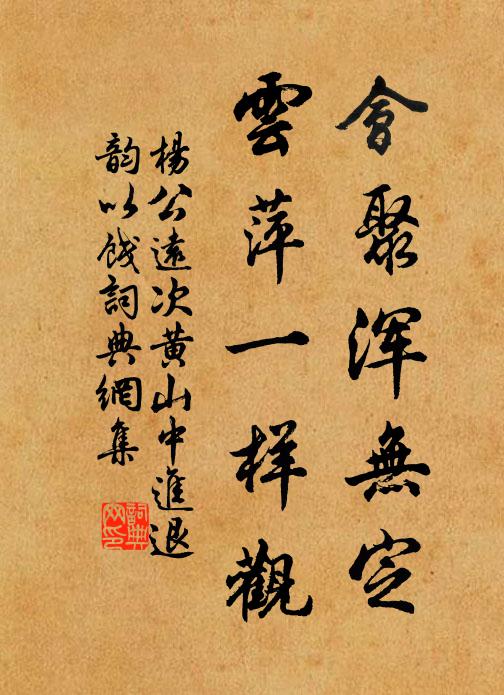 會聚浑無定
雲萍一样觀
楊公遠次黄山中進退
韵以餞詞典網集
詞典
网印